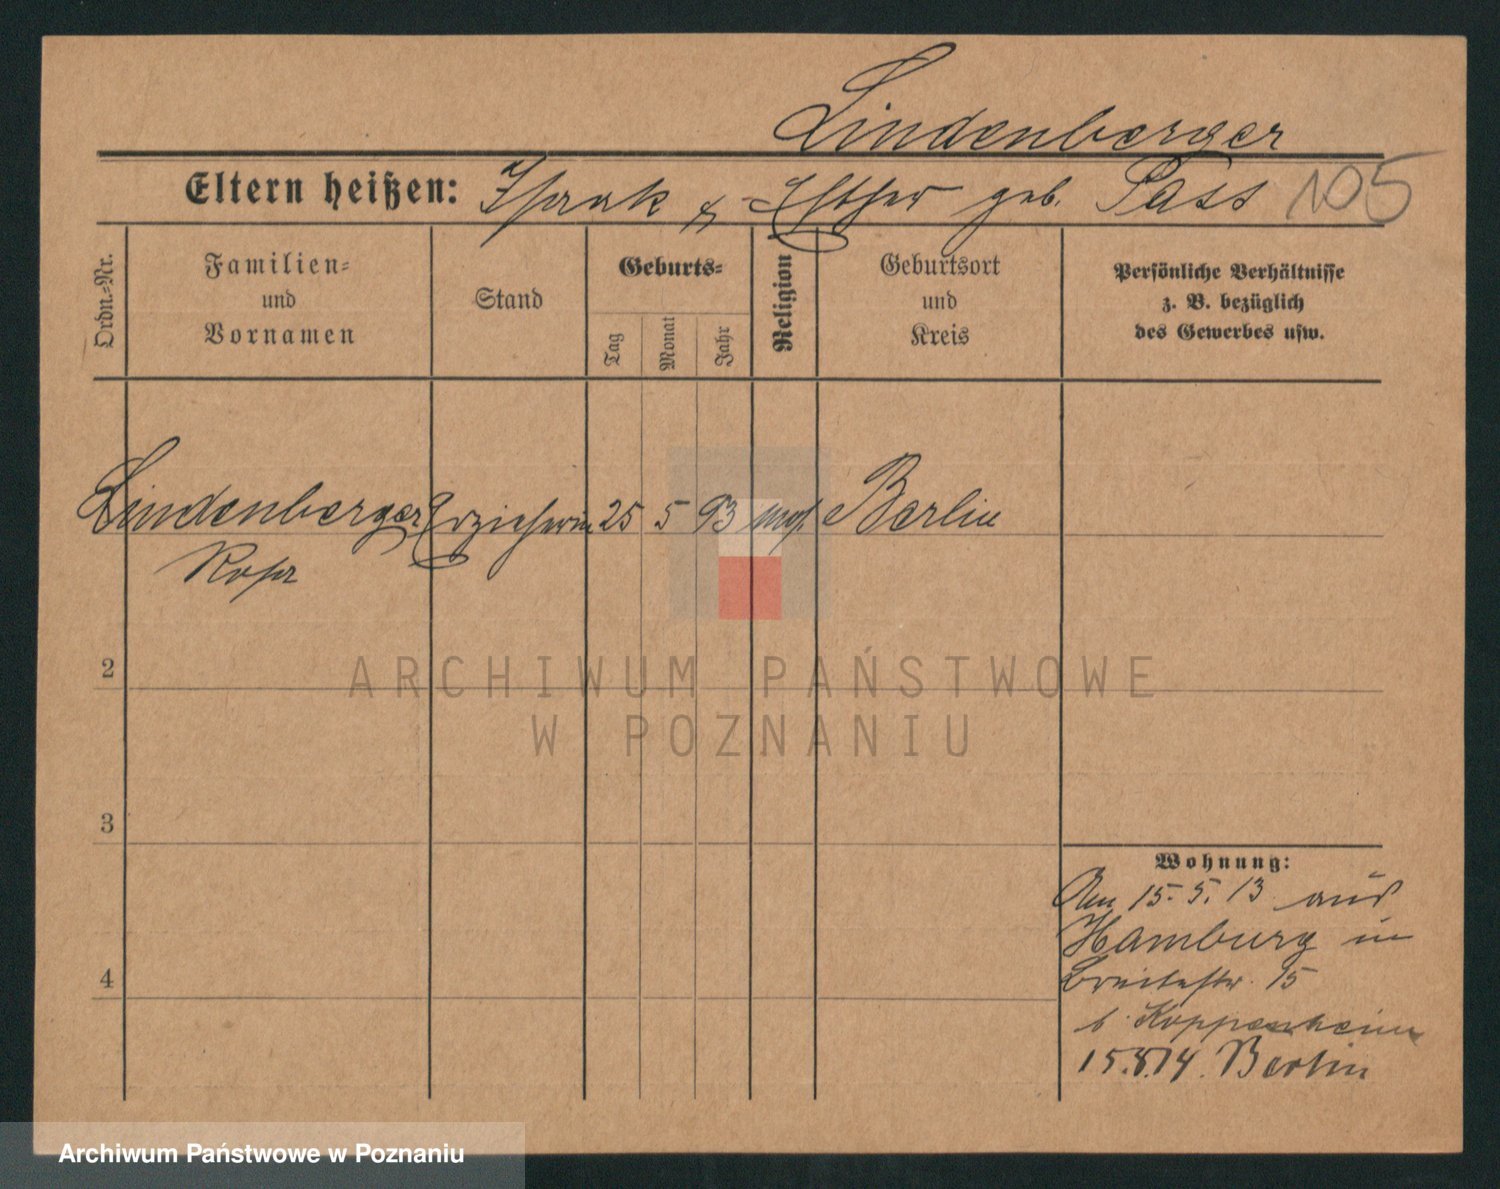 Lindenberger
Eltern heißen: Isaak & Esther geb. Pass 105
Ordn.-Nr.
Familien-
und
Vornamen
Stand
Geburts-
Tag
Monat
Jahr
Religion
Geburtsort
und
Kreis
Persönliche Verhältnisse
z. B. bezüglich
des Gewerbes usw.
Lindenberger Erzieherin 25 5 93 mos. Berlin
Rosa
2
ARCHIWUM PAŃSTWOWE
W POZNANIU
3
4
Wohnung:
Am 15.5.13 aus
Hamburg in
Breitestr. 15
b. Koppenheim
15.8.14. Berlin
Archiwum Państwowe w Poznaniu